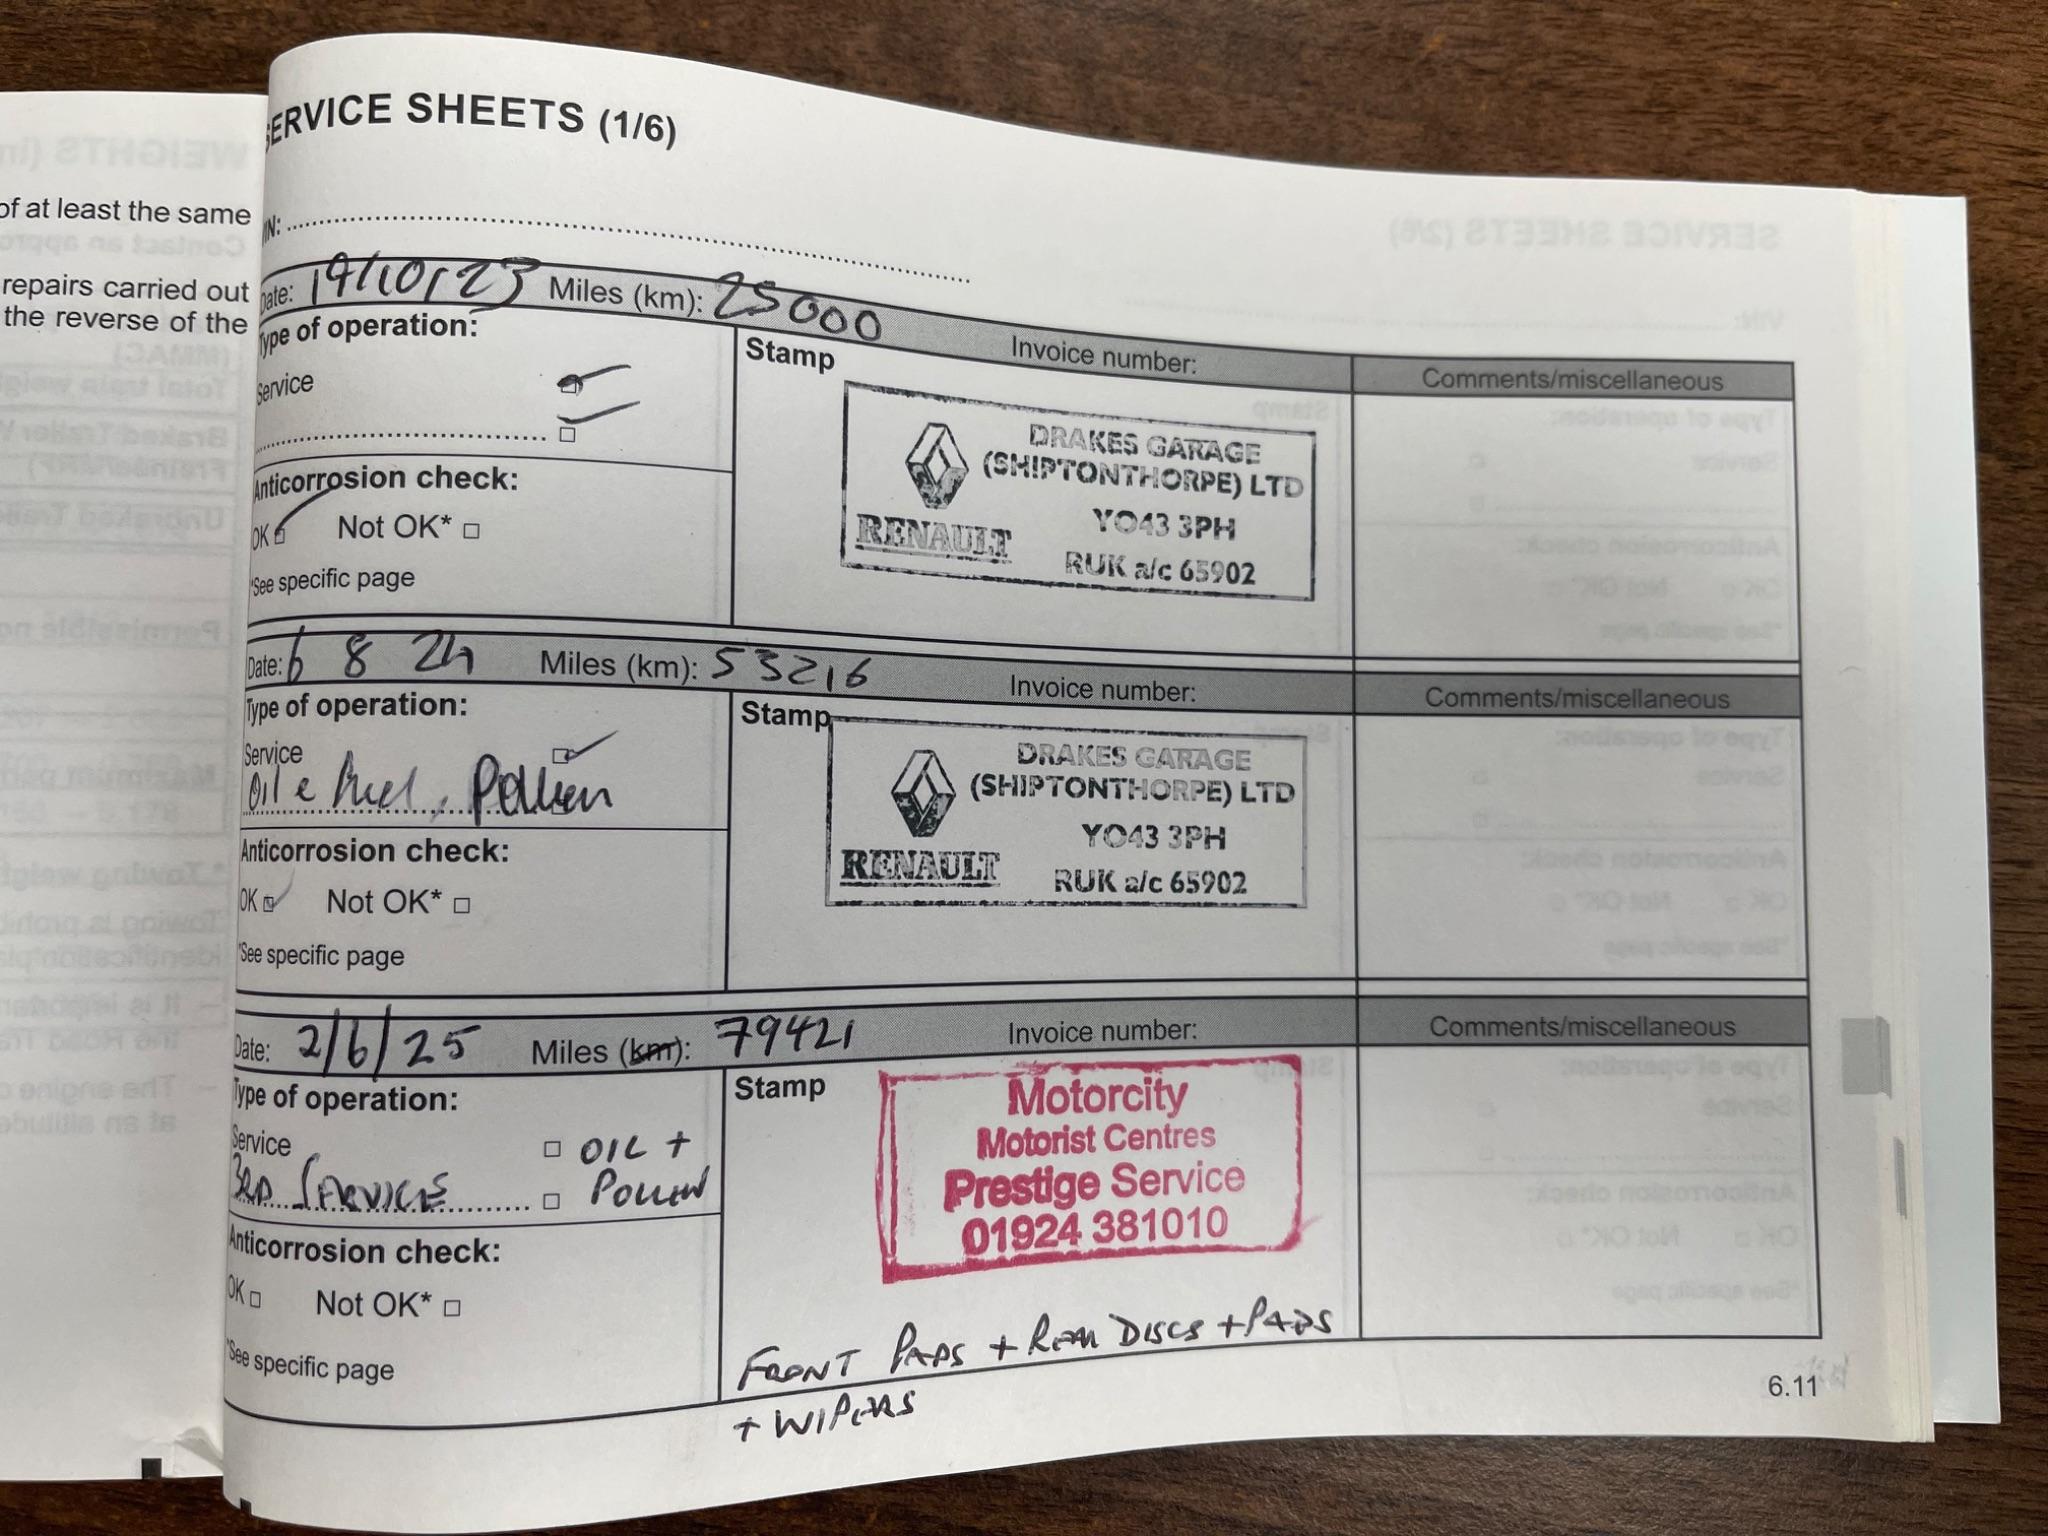 of at least the same
repairs carried out
the reverse of the
SERVICE SHEETS (1/6)
VIN:
Date: 19/10/23 Miles (km): 25000 Invoice number: Comments/miscellaneous
Type of operation:
Service
Stamp
DRAKES GARAGE
(SHIPTONTHORPE) LTD
YO43 3PH
RENAULT
RUK a/c 65902
Anticorrosion check:
OK Not OK*
*See specific page
Date: 6 8 24 Miles (km): 53216 Invoice number: Comments/miscellaneous
Type of operation:
Service
Oil e fuel, Pollen
Stamp
DRAKES GARAGE
(SHIPTONTHORPE) LTD
YO43 3PH
RENAULT
RUK a/c 65902
Anticorrosion check:
OK Not OK*
*See specific page
Date: 2/6/25 Miles (km): 79421 Invoice number: Comments/miscellaneous
Type of operation:
Service OIL +
3RD SERVICE POLLEN
Stamp
Motorcity
Motorist Centres
Prestige Service
01924 381010
Anticorrosion check:
OK Not OK*
*See specific page
FRONT PADS + REAR DISCS + PADS
+ WIPERS
6.11